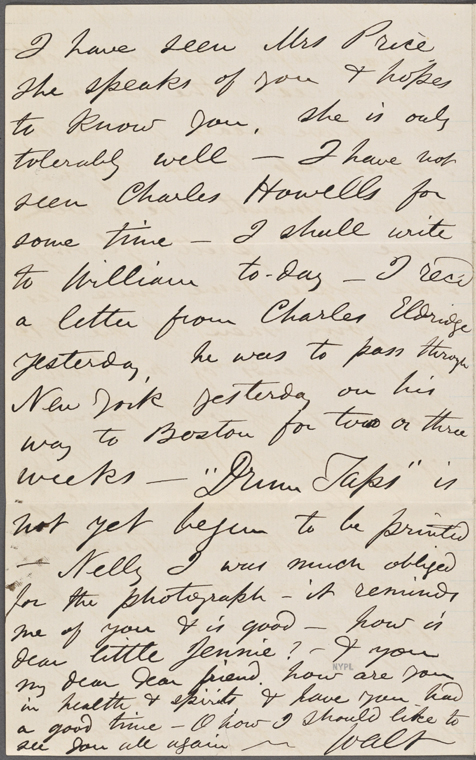 I have seen Mrs Price
she speaks of you & hopes
to know you, she is only
tolerably well — I have not
seen Charles Howells for
some time — I shall write
to William to-day — I rec'd
a letter from Charles Eldridge
yesterday, he was to pass through
New York yesterday on his
way to Boston for two or three
weeks — "Drum Taps" is
not yet begun to be printed
— Nelly I was much obliged
for the photograph – it reminds
me of you & is good — how is
dear little Jennie? – & you
my dear dear friend, how are you
in health & spirits, & have you had
a good time – O how I should like to
see you all again — Walt
NYPL